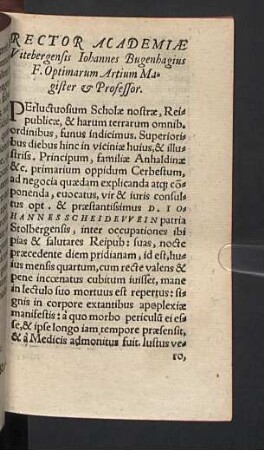 RECTOR ACADEMIÆ
Vitebergensis Iohannes Bugenhagius
F. Optimarum Artium Ma-
gister & Professor.
PErluctuosum Scholæ nostræ, Rei-
publicæ, & harum terrarum omnib.
ordinibus, funus indicimus. Superiori-
bus diebus hinc in viciniæ huius, & illu-
striss. Principum, familiæ Anhaldinæ
&c. primarium oppidum Cerbestum,
ad negocia quædam explicanda atq; cō-
ponenda, euocatus, vir & iuris consul-
tus opt. & præstantissimus D. IO-
HANNES SCHEIDEVVEIN patria
Stolbergensis, inter occupationes ibi
pias & salutares Reipub: suas, nocte
præcedente diem pridianam, id est, hu-
ius mensis quartum, cum recte valens &
pene incœnatus cubitum iuisset, mane
in lectulo suo mortuus est repertus: si-
gnis in corpore extantibus apoplexiæ
manifestis: à quo morbo periculū ei es-
se, & ipse longo iam tempore præsensit,
& à Medicis admonitus fuit. Iustus ve-
ro,